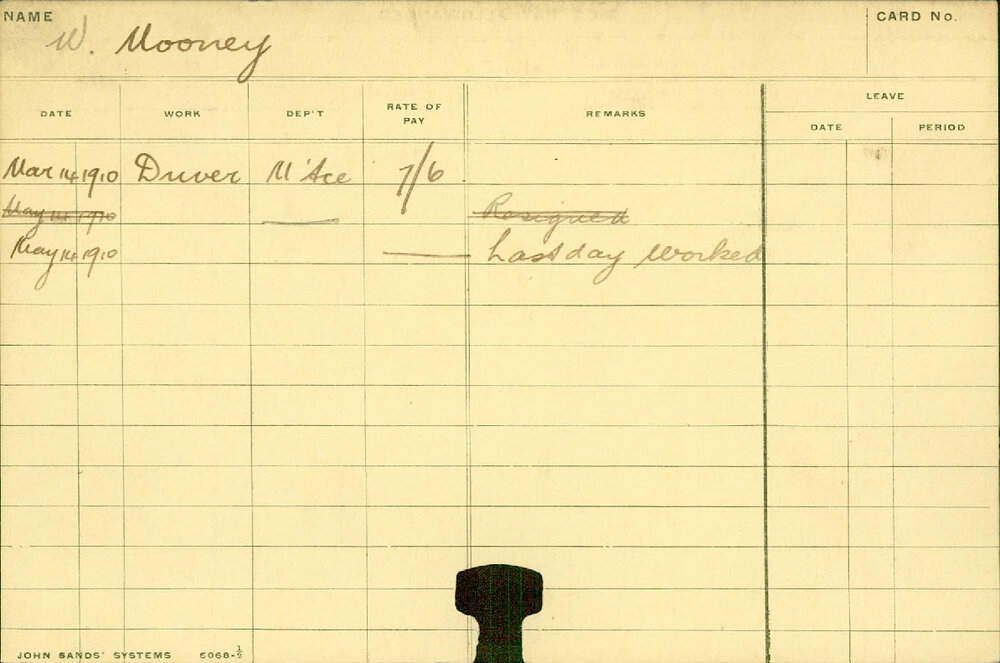 NAME W. Mooney CARD No.
LEAVE
DATE WORK DEP'T RATE OF PAY REMARKS DATE PERIOD
Mar 14 1910 Driver M'tce 7/6
May 14 1910 Resigned
May 14 1910 Last day worked
JOHN SANDS' SYSTEMS 5068-½